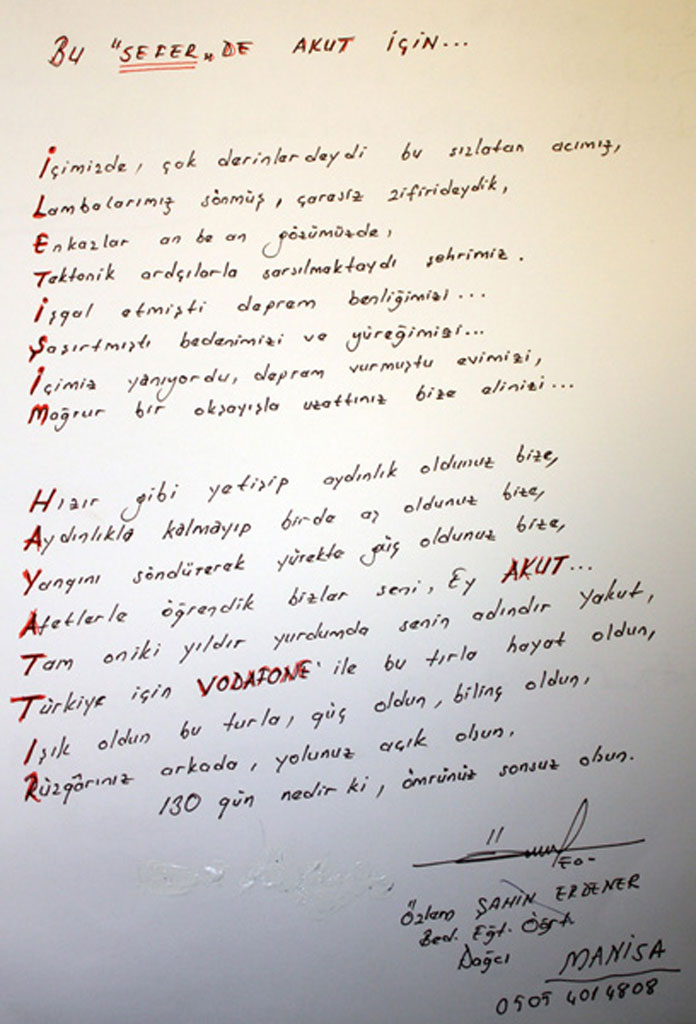 Bu "SEFER"DE AKUT İÇİN...
İçimizde, çok derinlerdeydi bu sızlatan acımız,
Lambalarımız sönmüş, çaresiz zifirideydik,
Enkazlar an be an gözümüzde,
Tektonik ardçılarla sarsılmaktaydı şehrimiz.
İşgal etmişti deprem benliğimizi...
Şaşırtmıştı bedenimizi ve yüreğimizi...
İçimiz yanıyordu, deprem vurmuştu evimizi,
Mağrur bir okşayışla uzattınız bize elinizi...
Hızır gibi yetişip aydınlık oldunuz bize,
Aydınlıkla kalmayıp birde aş oldunuz bize,
Yangını söndürerek yürekte güç oldunuz bize,
Afetlerle öğrendik bizler seni, Ey AKUT...
Tam oniki yıldır yurdumda senin adındır yakut,
Türkiye için VODAFONE' ile bu tırla hayat oldun,
Işık oldun bu turla, güç oldun, bilinç oldun,
Rüzgârınız arkada, yolunuz açık olsun.
130 gün nedir ki, ömrünüz sonsuz olsun.
Özlem ŞAHİN ERDENER
Bed. Eğt. Öğrt.
Dağcı
MANİSA
0505 401 4808